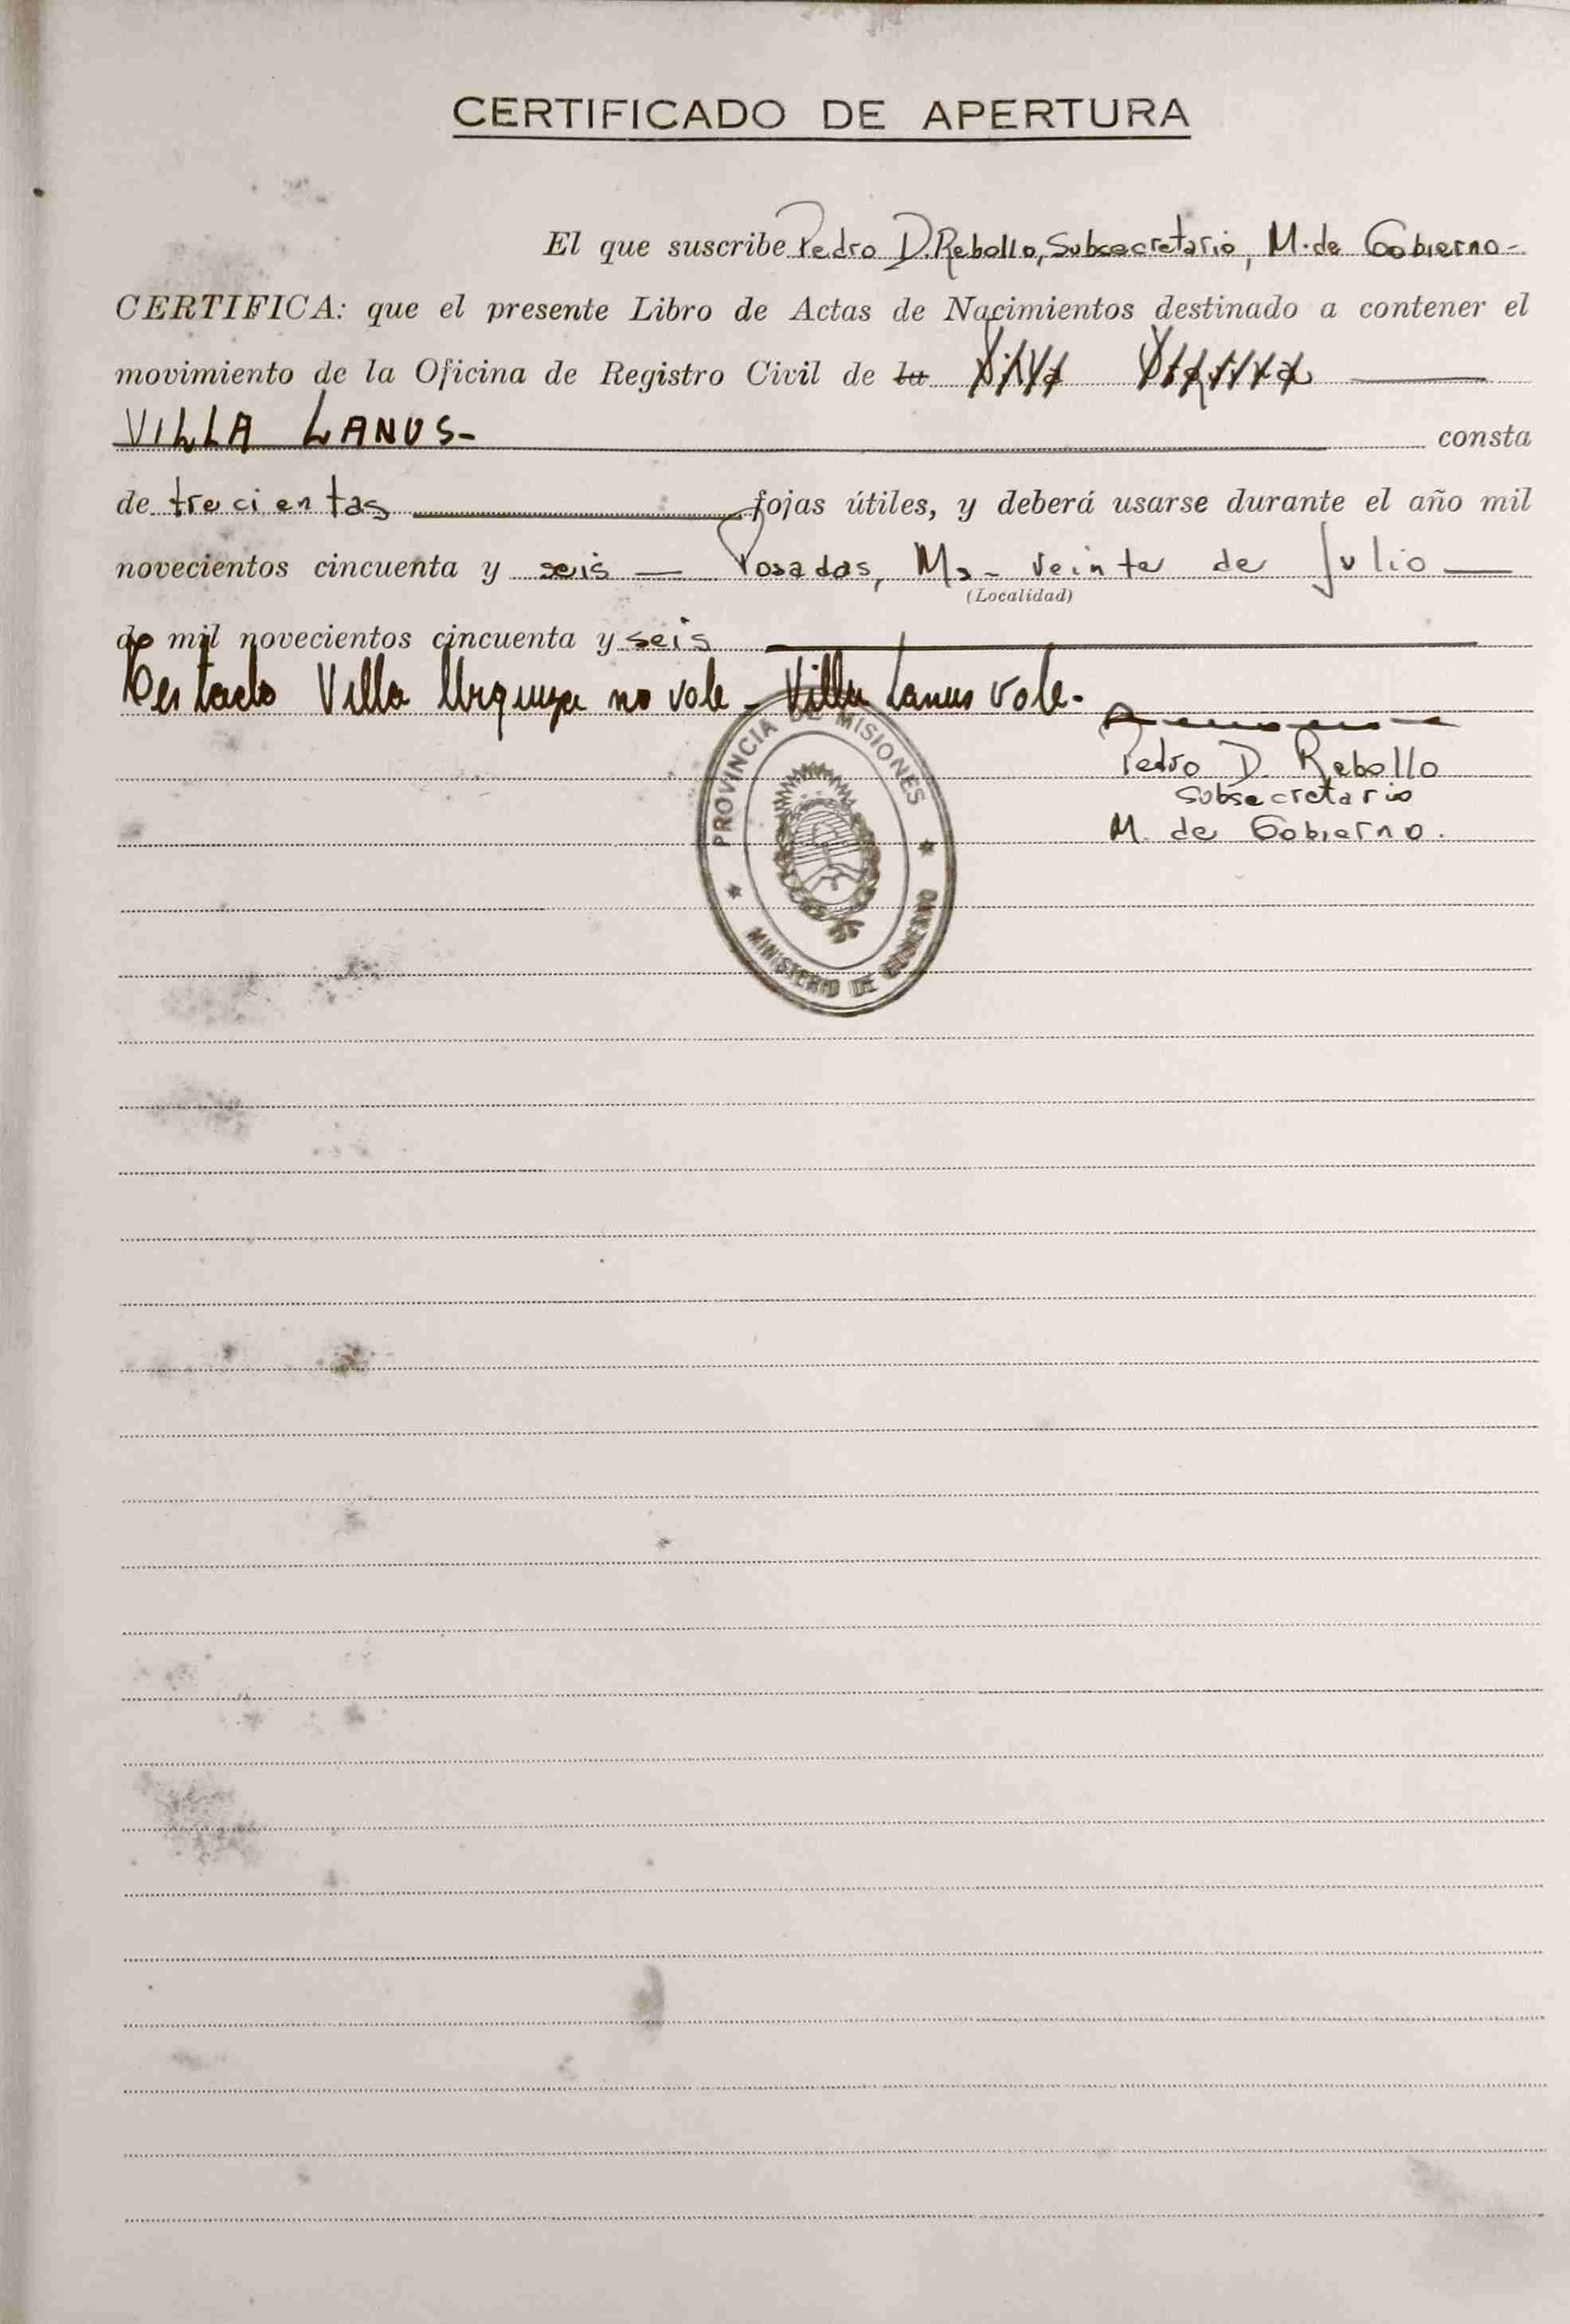 CERTIFICADO DE APERTURA
El que suscribe Pedro D. Rebollo, Subsecretario, M. de Gobierno-
CERTIFICA: que el presente Libro de Actas de Nacimientos destinado a contener el
movimiento de la Oficina de Registro Civil de la Villa Urquiza
VILLA LANUS- consta
de trecientas fojas útiles, y deberá usarse durante el año mil
novecientos cincuenta y seis — Posadas, Ms- veinte de Julio —
(Localidad)
de mil novecientos cincuenta y seis
Testado Villa Urquiza no vale - Villa Lanus vale-
Pedro D. Rebollo
Subsecretario
M. de Gobierno.
PROVINCIA DE MISIONES
MINISTERIO DE GOBIERNO